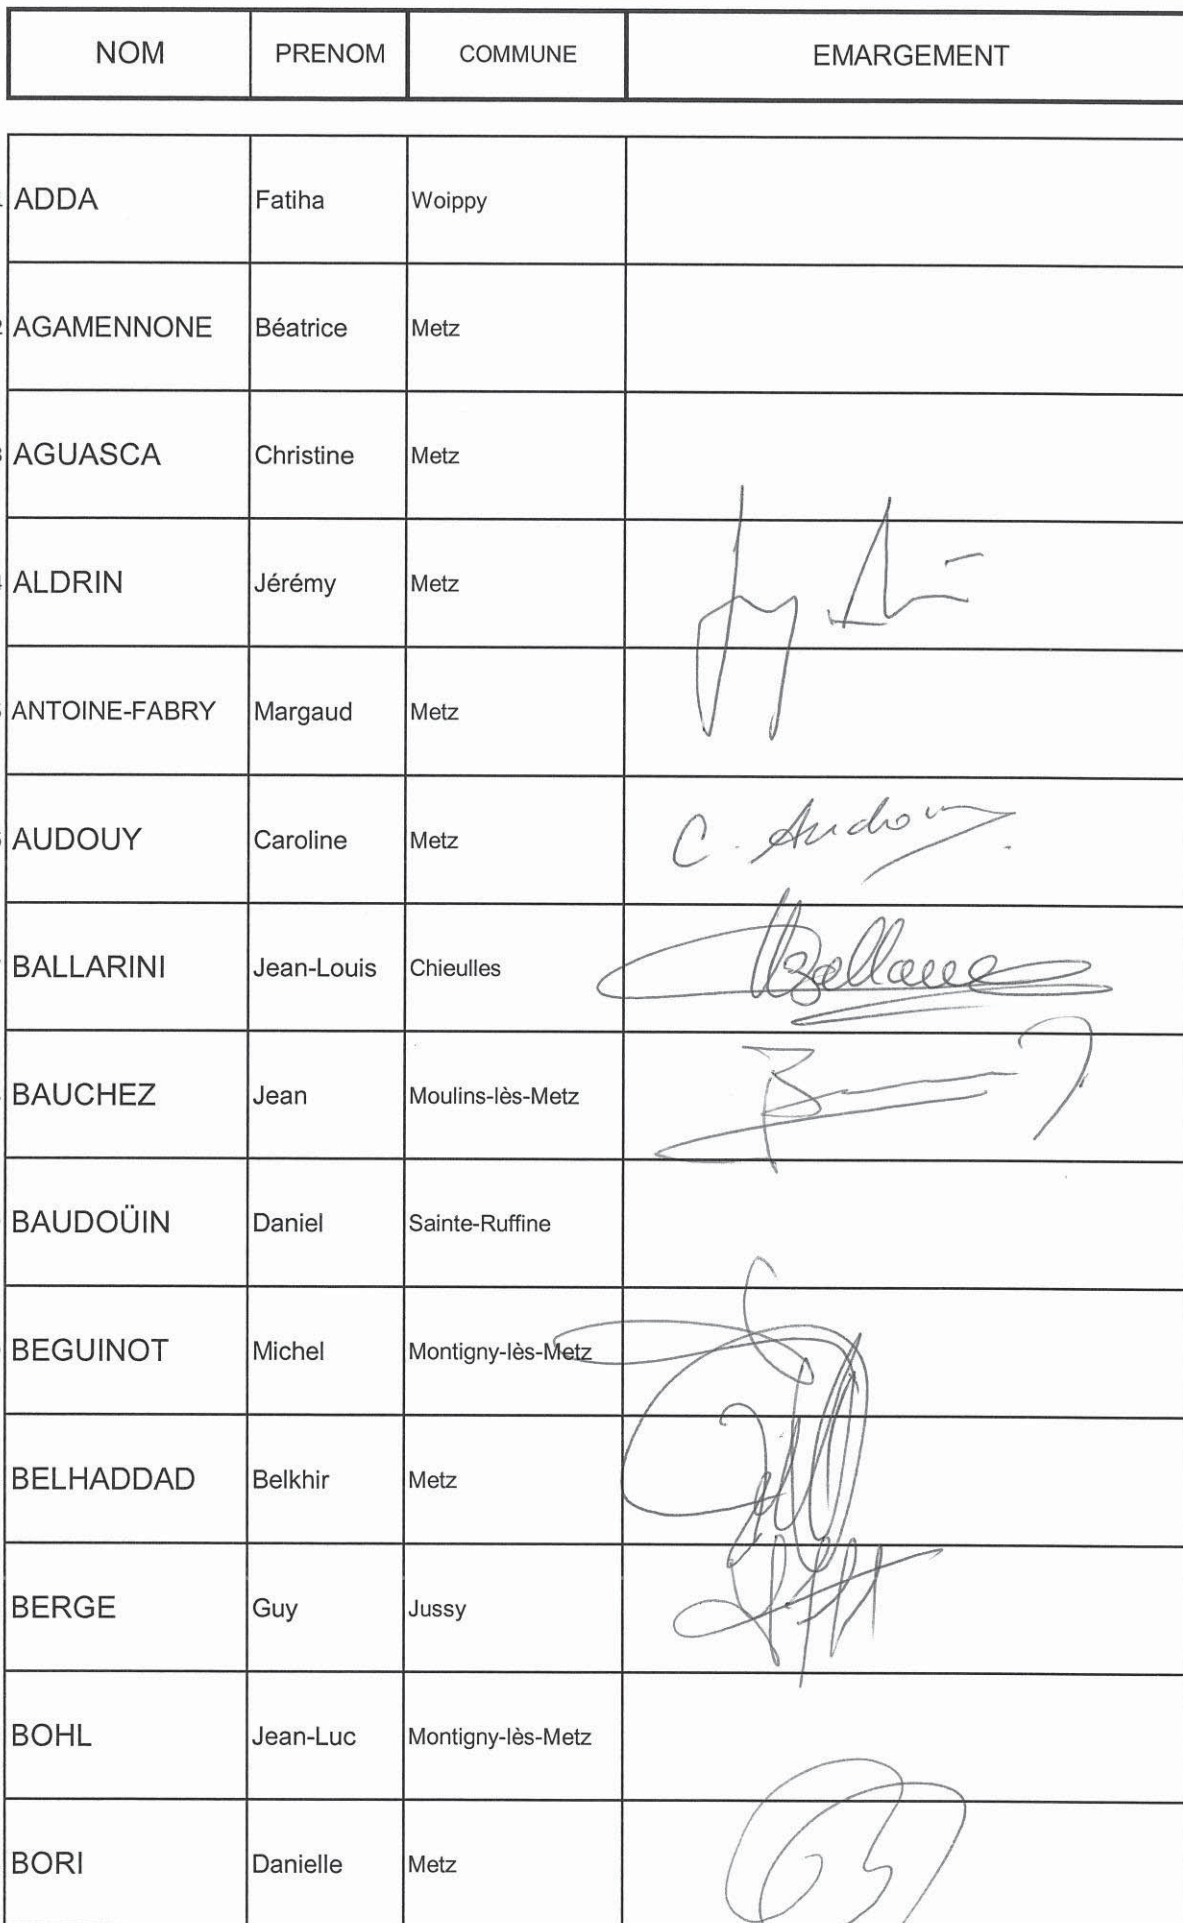 NOM PRENOM COMMUNE EMARGEMENT
ADDA Fatiha Woippy
2 AGAMENNONE Béatrice Metz
AGUASCA Christine Metz
ALDRIN Jérémy Metz
ANTOINE-FABRY Margaud Metz
AUDOUY Caroline Metz C. Audouy
BALLARINI Jean-Louis Chieulles
BAUCHEZ Jean Moulins-lès-Metz
BAUDOÜIN Daniel Sainte-Ruffine
BEGUINOT Michel Montigny-lès-Metz
BELHADDAD Belkhir Metz
BERGE Guy Jussy
BOHL Jean-Luc Montigny-lès-Metz
BORI Danielle Metz